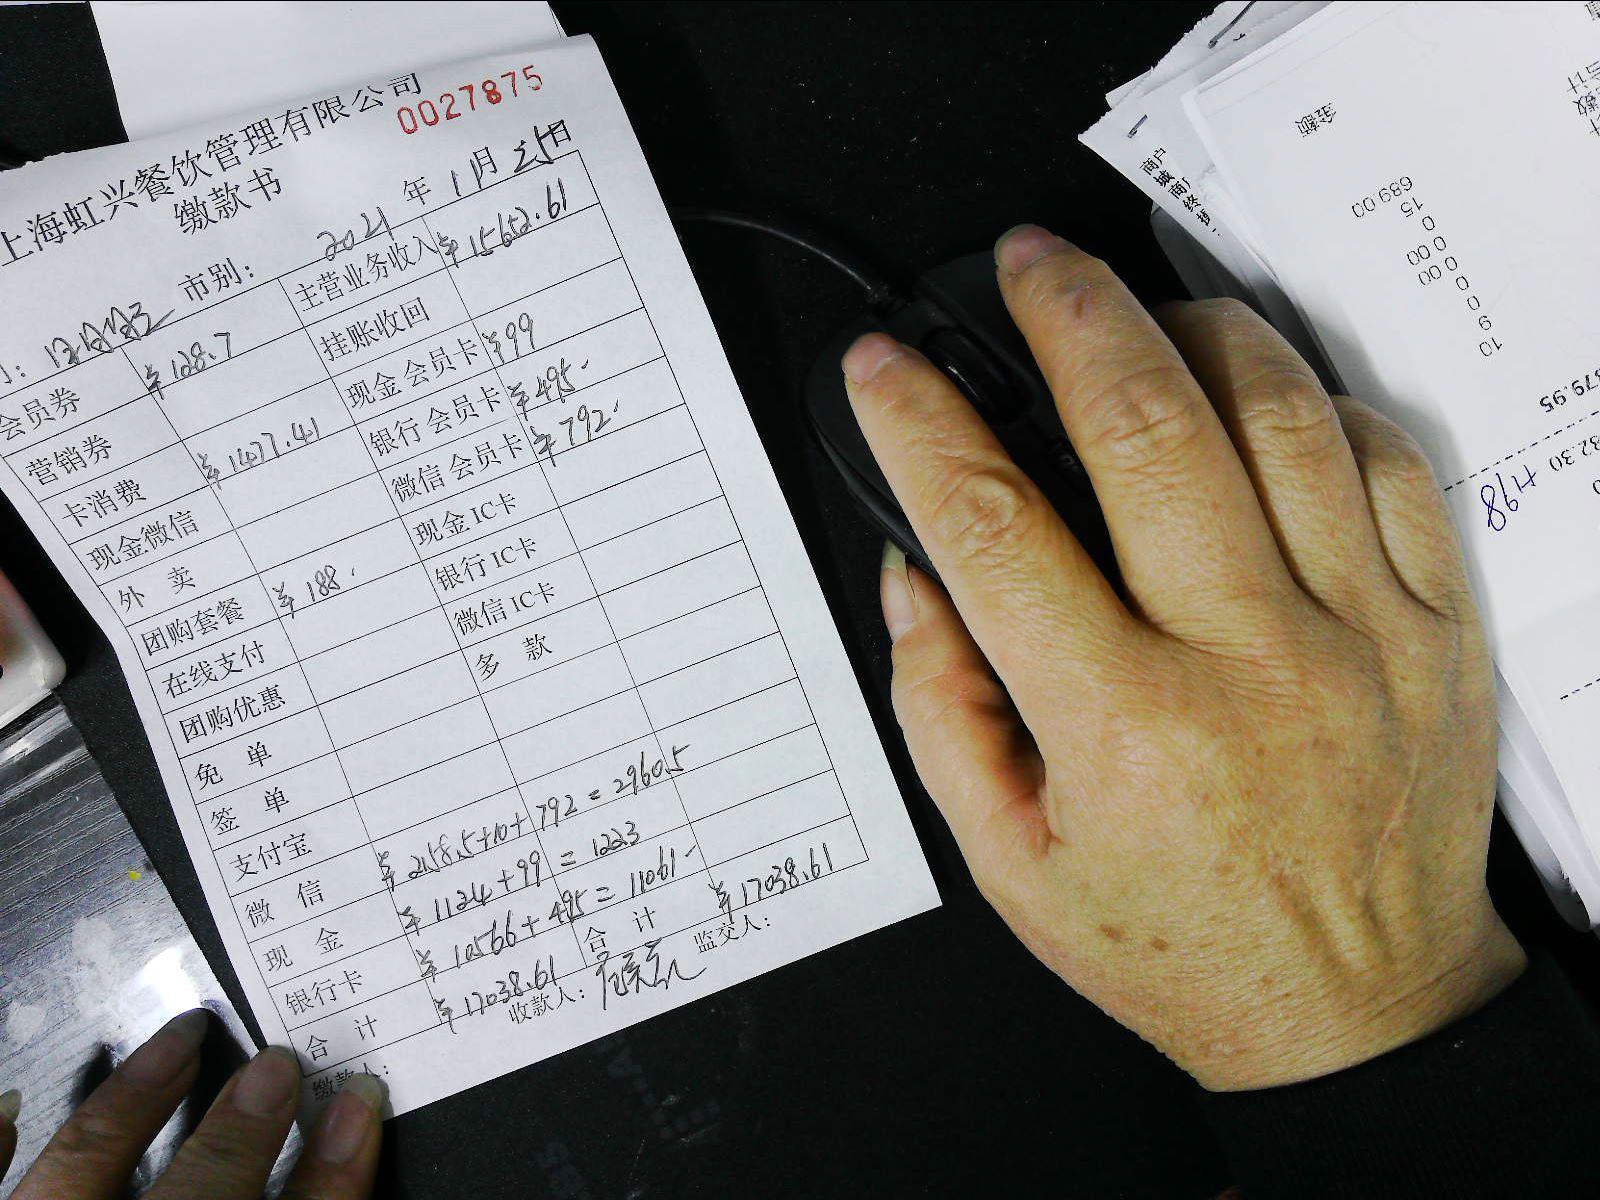 上海虹兴餐饮管理有限公司
0027875
缴款书
市别: 2021 年 1 月 日
会员券 ¥128.7 主营业务收入 ¥15652.61
营销券 挂账收回
卡消费 ¥1477.41 现金会员卡 ¥99
现金微信 银行会员卡 ¥495.
外 卖 微信会员卡 ¥792.
团购套餐 ¥188. 现金IC卡
在线支付 银行IC卡
团购优惠 微信IC卡
免 单 多 款
签 单
支付宝
微 信 ¥2158.5+10+792=2960.5
现 金 ¥1124+99=1223
银行卡 ¥10566+495=11061-
合 计 ¥17038.61 合 计 ¥17038.61
缴款人: 收款人: 监交人:
商户
商户
终
金额
合计
689.00
15
0
0.00
0.00
0
0
9
10
379.95
32.30
+198